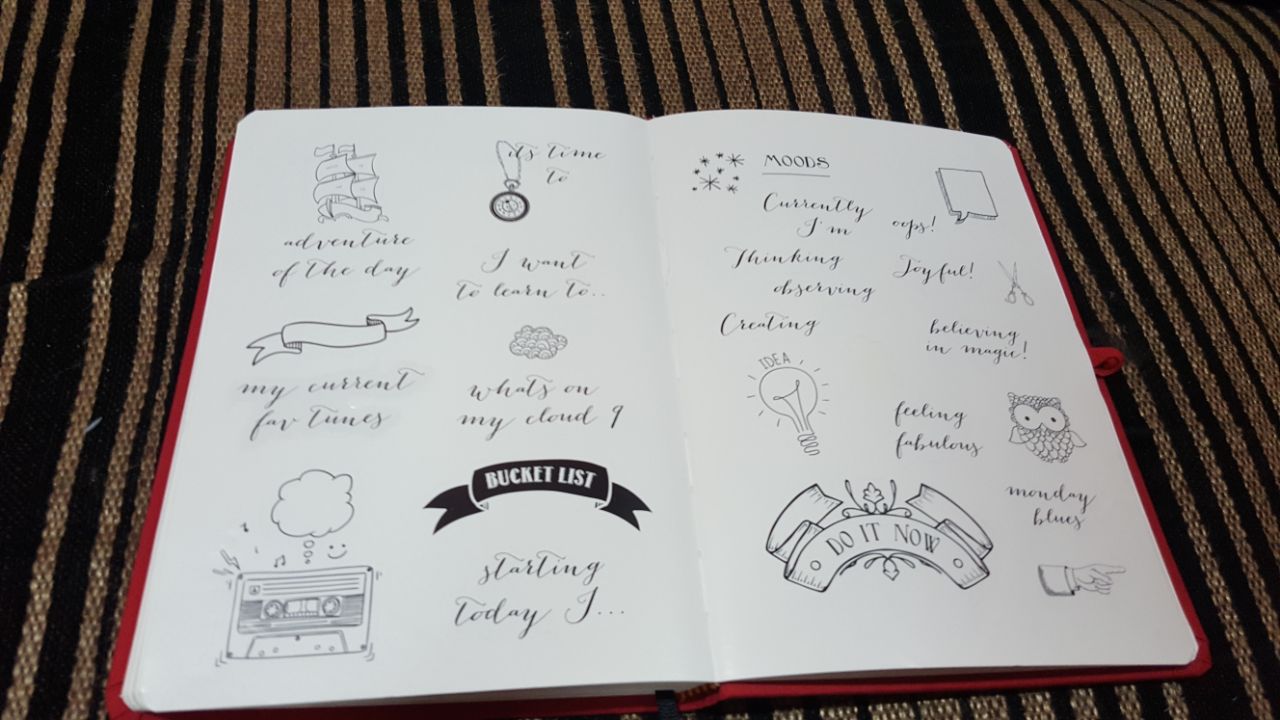 adventure
of the day
my current
fav tunes
its time
to
I want
to learn to..
whats on
my cloud 9
BUCKET LIST
starting
today I...
MOODS
Currently
I'm
oops!
Thinking
observing
Joyful!
Creating
believing
in magic!
IDEA
feeling
fabulous
DO IT NOW
monday
blues